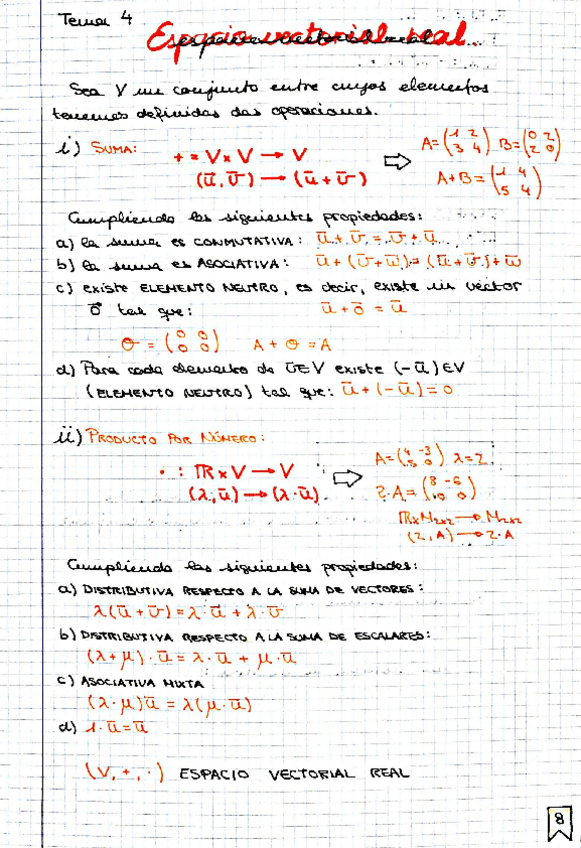 Tema 4
Espacio vectorial real
espacio vectorial real
Sea V un conjunto entre cuyos elementos
tenemos definidas dos operaciones.
i) SUMA:
+ = V x V → V
(ū, v̄) → (ū + v̄)
⇨
A = (1 2 / 3 4) B = (0 2 / 2 0)
A + B = (1 4 / 5 4)
Cumpliendo las siguientes propiedades:
a) la suma es CONMUTATIVA: ū + v̄ = v̄ + ū
b) la suma es ASOCIATIVA: ū + (v̄ + w̄) = (ū + v̄) + w̄
c) existe ELEMENTO NEUTRO, es decir, existe un vector
o⃗ tal que: ū + ō = ū
O = (0 0 / 0 0) A + O = A
d) Para cada elemento de ū ∈ V existe (-ū) ∈ V
(ELEMENTO NEUTRO) tal que: ū + (-ū) = 0
ii) PRODUCTO POR NÚMERO:
· : ℝ x V → V
(λ, ū) → (λ · ū)
⇨
A = (4 -3 / 5 0) λ = 2
2 · A = (8 -6 / 10 0)
ℝ x M2x2 → M2x2
(2, A) → 2 · A
Cumpliendo las siguientes propiedades:
a) DISTRIBUTIVA RESPECTO A LA SUMA DE VECTORES:
λ(ū + v̄) = λ · ū + λ · v̄
b) DISTRIBUTIVA RESPECTO A LA SUMA DE ESCALARES:
(λ + μ) · ū = λ · ū + μ · ū
c) ASOCIATIVA MIXTA
(λ · μ) ū = λ(μ · ū)
d) 1 · ū = ū
(V, +, ·) ESPACIO VECTORIAL REAL
8